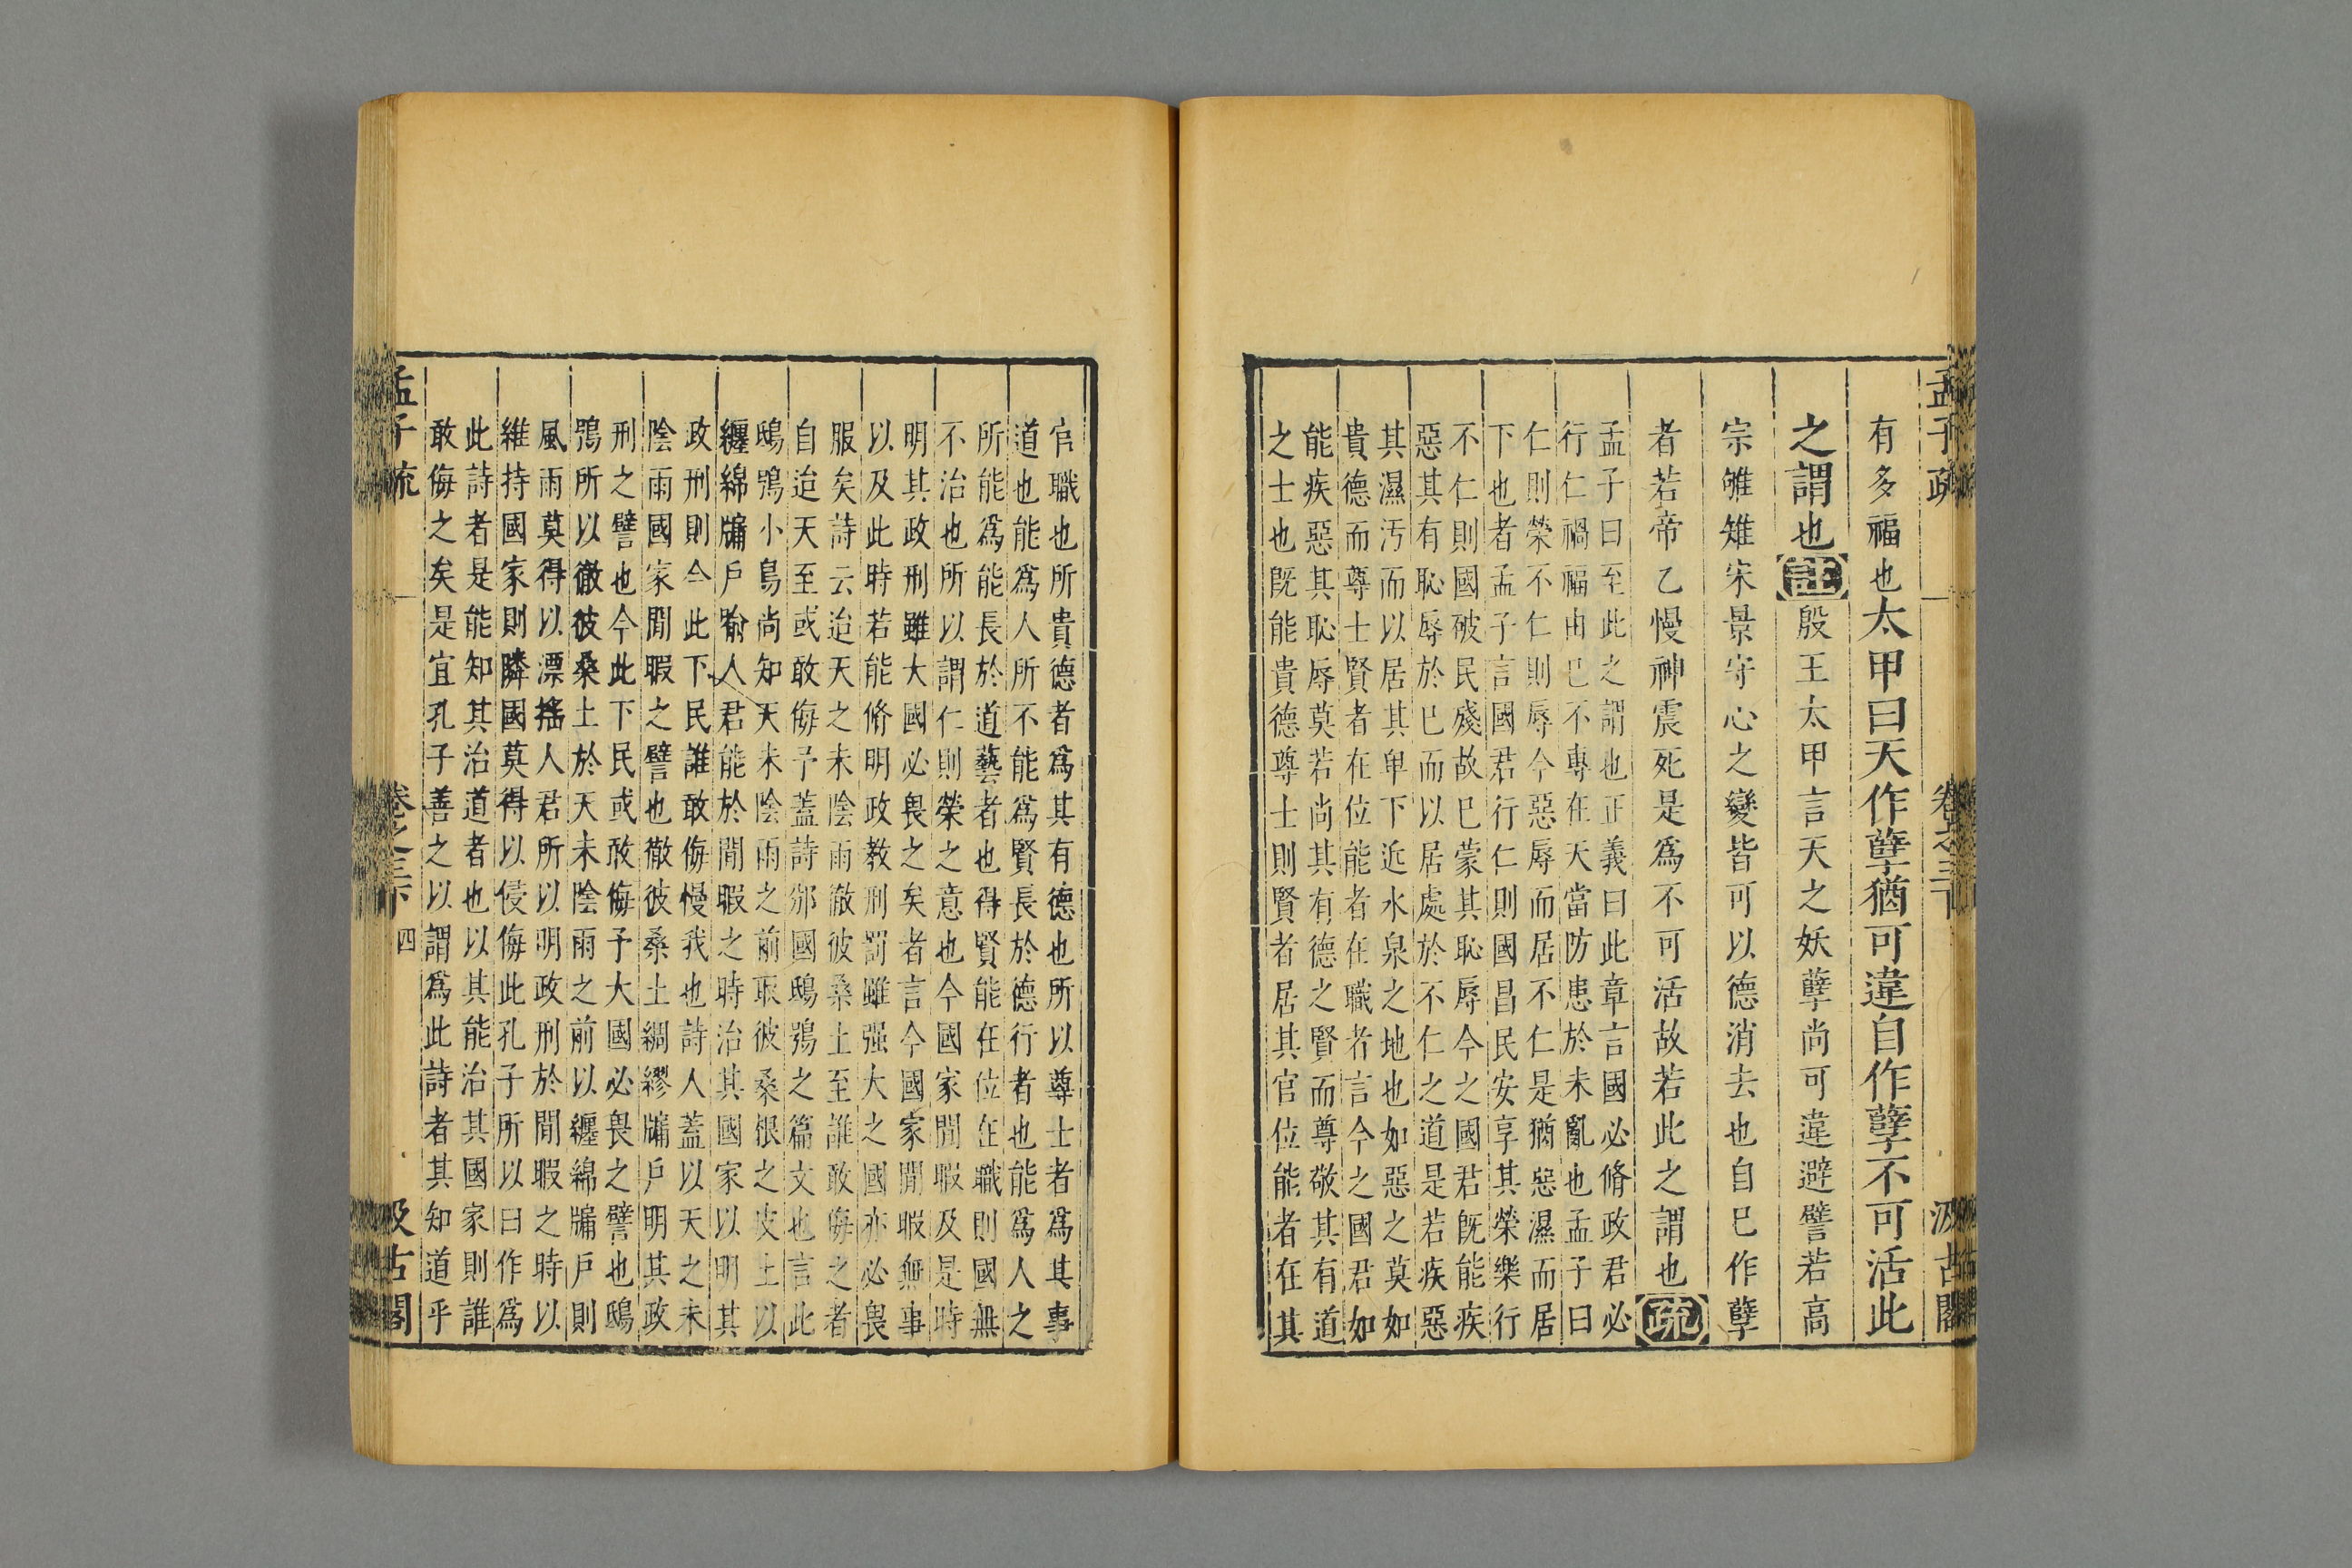 孟子疏 卷之三下 汲古閣
有多福也太甲曰天作孽猶可違自作孽不可活此
之謂也註殷王太甲言天之妖孽尚可違避譬若高
宗雊雉宋景守心之變皆可以德消去也自巳作孽
者若帝乙慢神震死是爲不可活故若此之謂也疏
孟子曰至此之謂也正義曰此章言國必脩政君必
行仁禍福由巳不專在天當防患於未亂也孟子曰
仁則榮不仁則辱今惡辱而居不仁是猶惡濕而居
下也者孟子言國君行仁則國昌民安享其榮樂行
不仁則國破民殘故巳蒙其恥辱今之國君旣能疾
惡其有恥辱於巳而以居處於不仁之道是若疾惡
其濕汚而以居其卑下近水泉之地也如惡之莫如
貴德而尊士賢者在位能者在職者言今之國君如
能疾惡其恥辱莫若尚其有德之賢而尊敬其有道
之士也旣能貴德尊士則賢者居其官位能者在其
官職也所貴德者爲其有德也所以尊士者爲其事
道也能爲人所不能爲賢長於德行者也能爲人之
所能爲能長於道藝者也得賢能在位在職則國無
不治也所以謂仁則榮之意也今國家閒暇及是時
明其政刑雖大國必畏之矣者言今國家閒暇無事
以及此時若能脩明政教刑罰雖强大之國亦必畏
服矣詩云迨天之未陰雨徹彼桑土至誰敢侮之者
自迨天至或敢侮予蓋詩邠國鴟鴞之篇文也言此
鴟鴞小鳥尚知天未陰雨之前取彼桑根之皮土以
纏綿牖戶喻人君能於閒暇之時治其國家以明其
政刑則今此下民誰敢侮慢我也詩人蓋以天之未
陰雨國家閒暇之譬也徹彼桑土綢繆牖戶明其政
刑之譬也今此下民或敢侮予大國必畏之譬也鴟
鴞所以徹彼桑土於天未陰雨之前以纏綿牖戶則
風雨莫得以漂搖人君所以明政刑於閒暇之時以
維持國家則隣國莫得以侵侮此孔子所以曰作爲
此詩者是能知其治道者也以其能治其國家則誰
敢侮之矣是宜孔子善之以謂爲此詩者其知道乎
孟子疏 卷之三下 四 汲古閣